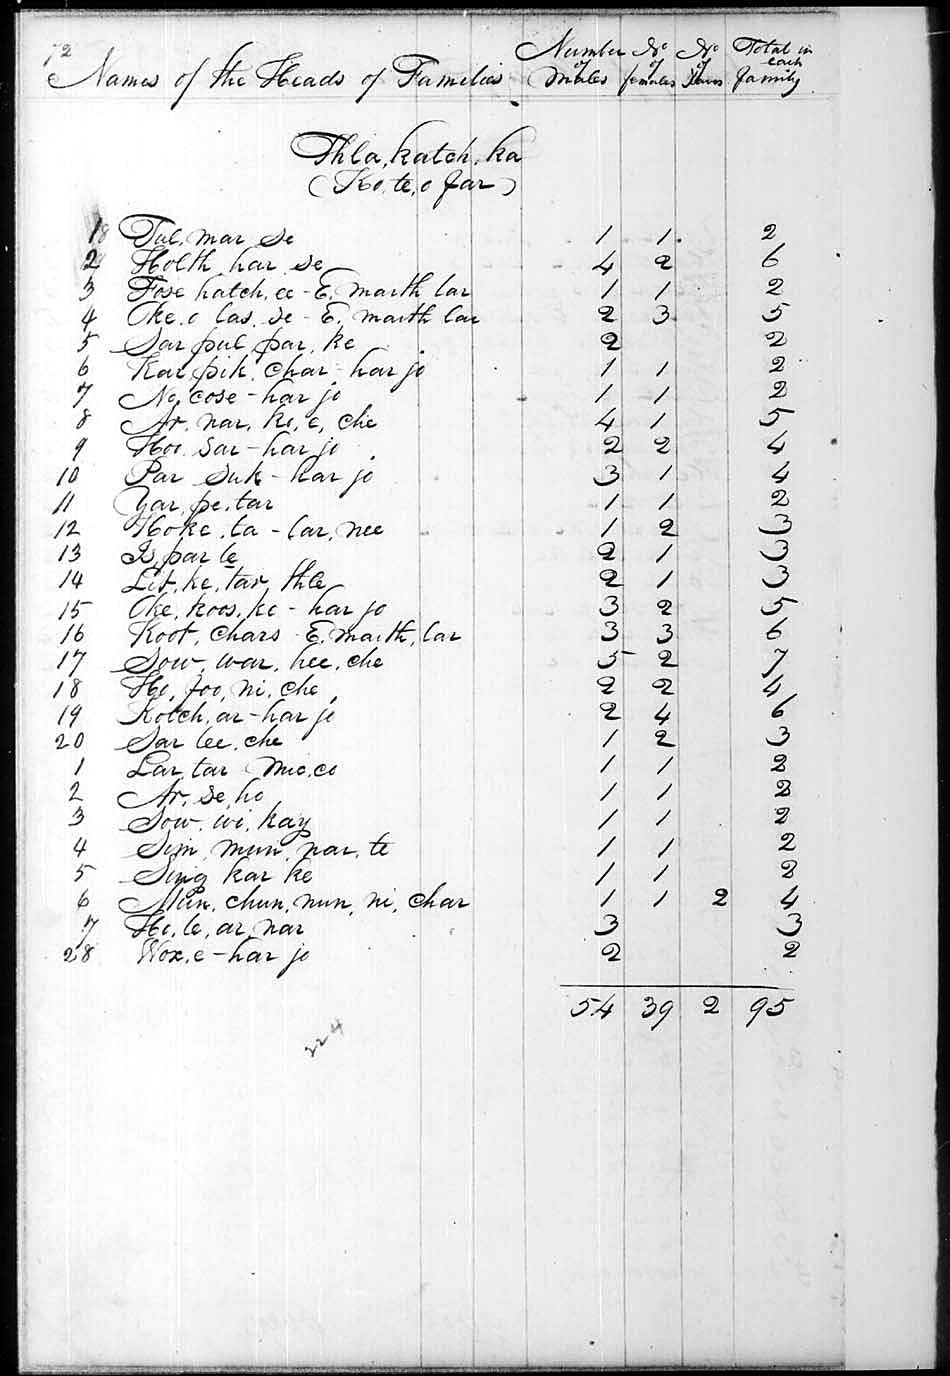 72
Names of the Heads of Families Number of Males No of females No of Slaves Total in each family
Thla, katch, ka
(Ko, te, o far)
1 Tul, mar se 1 1 2
2 Holth, har, se 4 2 6
3 Fose hatch, ee - E, marth lar 1 1 2
4 Oke, o las, se - E, marth lar 2 3 5
5 Sar pul, par, ke 2 2
6 Kar pik, char - har jo 1 1 2
7 No, cose - har jo 1 1 2
8 Ar, nar, ke, e, che 4 1 5
9 Hoo, sar - har jo 2 2 4
10 Par suk - har jo 3 1 4
11 Yar, pe, tar 1 1 2
12 Hoke, ta - lar, nee 1 2 3
13 Is, par le 2 1 3
14 Lit, ke, tar, thle 2 1 3
15 Oke, koos, ke - har jo 3 2 5
16 Koot, chars - E, marth, lar 3 3 6
17 Sow, war, hee, che 5 2 7
18 Ho, foo, ni, che 2 2 4
19 Kotch, ar - har jo 2 4 6
20 Sar lee, che 1 2 3
1 Lar, tar Mic, co 1 1 2
2 Ar, se, ho 1 1 2
3 Sow, wi, kay 1 1 2
4 Sim, mun, nar, te 1 1 2
5 Sing kar ke 1 1 2
6 Mun, chun, nun, ni, char 1 1 2 4
7 Ho, le, ar, nar 3 3
28 Wox, e - har jo 2 2
54 39 2 95
224